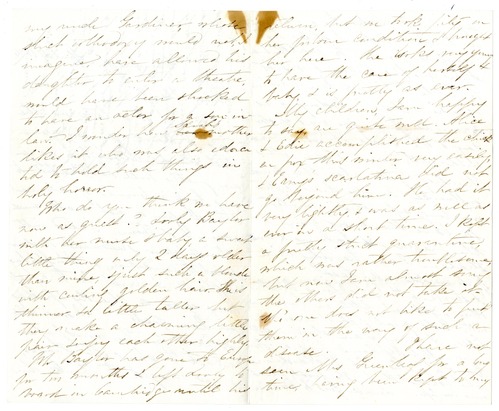 was uncle Gardiner, whose
strict orthodoxy would not I
imagine, have allowed his
daughter to enter a theatre,
would have been shocked
to have an actor for a son in
law. I wonder how mother
likes it who was also educa
ted to hold such things in
holy horror.
Who do you think we have
now as guests? Baylor
with her nurse & baby a sweet
little thing only 2 days older
than mine, & just such a blonde
with curling golden hair
thinner & a little taller
they make a charming little
pair enjoy each other highly.
Mr Baylor has gone to Europe
for two months & left
board in Cambridge until his
return, but we took pity on
her forlorn condition & brought
her here. She looks very young
to have the care of herself &
baby, & is pretty as ever.
My children, I am happy
to say are quite well. Alice
& Edie accomplished the chick
en pox this winter very easily
& scarlatina did not
go beyond him. He had it
very lightly & was as well as
ever in a short time. I kept
a pretty strict quarantine,
which was rather troublesome,
but now I am almost sorry
the others did not take it
one does not like to put
them in the way of such a
disease. I have not
seen Mrs Greenleaf for a long
time, having been kept to my